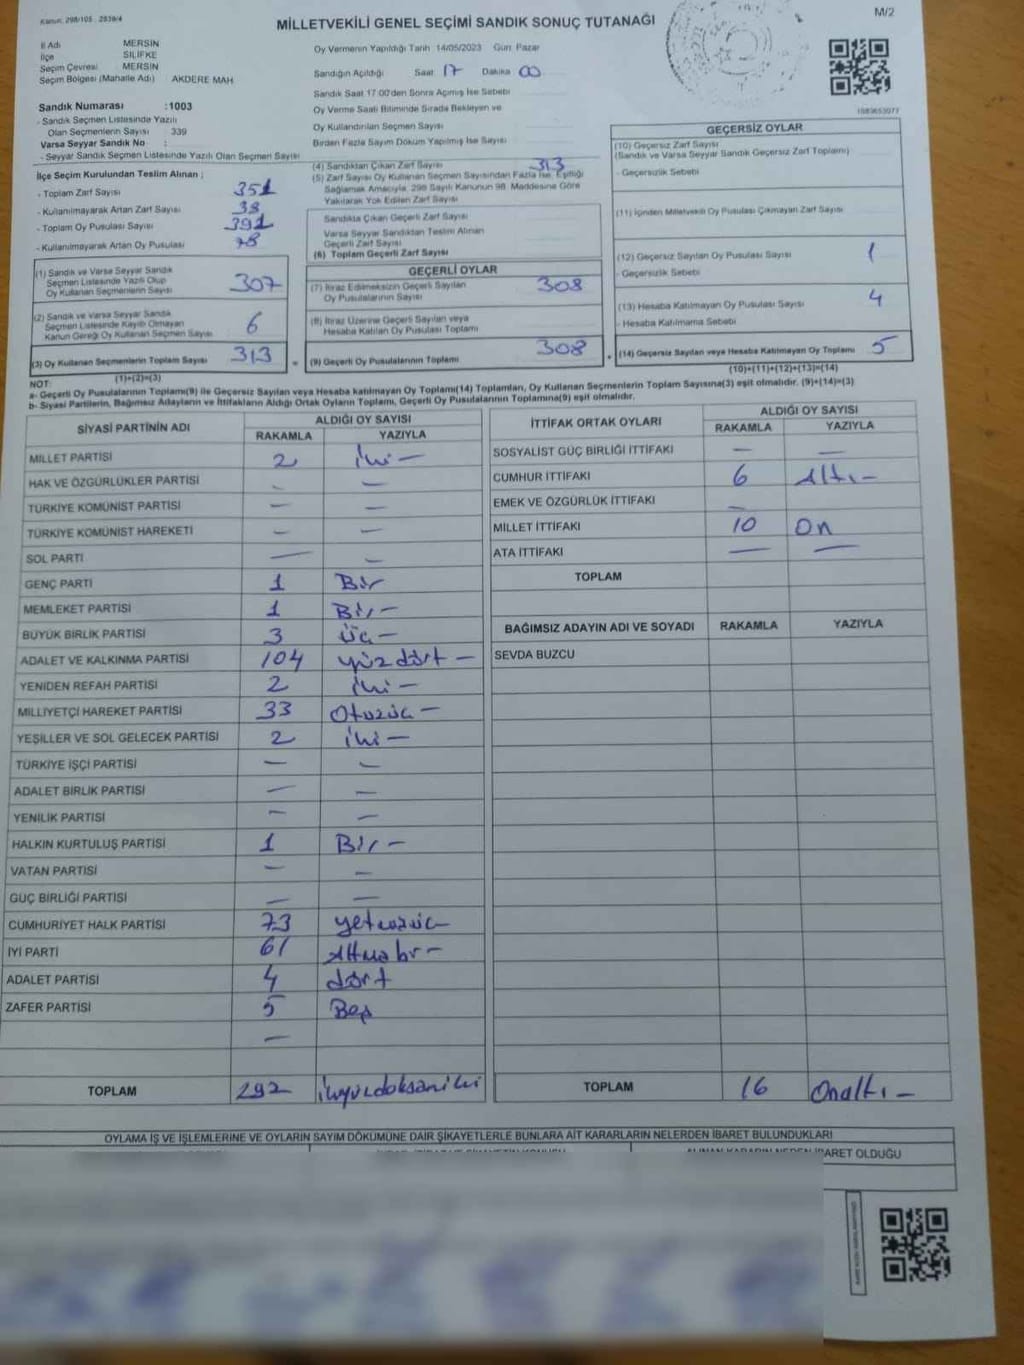 Kanun: 298/105 , 2839/4
MİLLETVEKİLİ GENEL SEÇİMİ SANDIK SONUÇ TUTANAĞI
M/2
İl Adı MERSİN
İlçe SİLİFKE
Seçim Çevresi MERSİN
Seçim Bölgesi (Mahalle Adı) AKDERE MAH
Sandık Numarası :1003
- Sandık Seçmen Listesinde Yazılı
Olan Seçmenlerin Sayısı 339
Varsa Seyyar Sandık No :
- Seyyar Sandık Seçmen Listesinde Yazılı Olan Seçmen Sayısı
Oy Vermenin Yapıldığı Tarih 14/05/2023 Gün: Pazar
Sandığın Açıldığı Saat 17 Dakika 00
Sandık Saat 17:00'den Sonra Açımış İse Sebebi
Oy Verme Saati Bitiminde Sırada Bekleyen ve
Oy Kullandırılan Seçmen Sayısı
Birden Fazla Sayım Döküm Yapılmış İse Sayısı
İlçe Seçim Kurulundan Teslim Alınan ;
- Toplam Zarf Sayısı 351
- Kullanılmayarak Artan Zarf Sayısı 38
- Toplam Oy Pusulası Sayısı 391
- Kullanılmayarak Artan Oy Pusulası 78
(1) Sandık ve Varsa Seyyar Sandık
Seçmen Listesinde Yazılı Olup
Oy Kullanan Seçmenlerin Sayısı 307
(2) Sandık ve Varsa Seyyar Sandık
Seçmen Listesinde Kayıtlı Olmayan
Kanun Gereği Oy Kullanan Seçmen Sayısı 6
(3) Oy Kullanan Seçmenlerin Toplam Sayısı 313
(1)+(2)=(3)
(4) Sandıktan Çıkan Zarf Sayısı 313
(5) Zarf Sayısı Oy Kullanan Seçmen Sayısından Fazla İse, Eşitliği
Sağlamak Amacıyla, 298 Sayılı Kanunun 98. Maddesine Göre
Yakılarak Yok Edilen Zarf Sayısı
Sandıkta Çıkan Geçerli Zarf Sayısı
Varsa Seyyar Sandıktan Teslim Alınan
Geçerli Zarf Sayısı
(6) Toplam Geçerli Zarf Sayısı
GEÇERLİ OYLAR
(7) İtiraz Edilmeksizin Geçerli Sayılan
Oy Pusulalarının Sayısı 308
(8) İtiraz Üzerine Geçerli Sayılan veya
Hesaba Katılan Oy Pusulası Toplamı
= (9) Geçerli Oy Pusulalarının Toplamı 308
GEÇERSİZ OYLAR
(10) Geçersiz Zarf Sayısı
(Sandık ve Varsa Seyyar Sandık Geçersiz Zarf Toplamı)
- Geçersizlik Sebebi
(11) İçinden Milletvekili Oy Pusulası Çıkmayan Zarf Sayısı
(12) Geçersiz Sayılan Oy Pusulası Sayısı 1
- Geçersizlik Sebebi
(13) Hesaba Katılmayan Oy Pusulası Sayısı 4
- Hesaba Katılmama Sebebi
+ (14) Geçersiz Sayılan veya Hesaba Katılmayan Oy Toplamı 5
(10)+(11)+(12)+(13)=(14)
NOT:
a- Geçerli Oy Pusulalarının Toplamı(9) ile Geçersiz Sayılan veya Hesaba katılmayan Oy Toplamı(14) Toplamları, Oy Kullanan Seçmenlerin Toplam Sayısına(3) eşit olmalıdır. (9)+(14)=(3)
b- Siyasi Partilerin, Bağımsız Adayların ve İttifakların Aldığı Ortak Oyların Toplamı, Geçerli Oy Pusulalarının Toplamına(9) eşit olmalıdır.
SİYASİ PARTİNİN ADI ALDIĞI OY SAYISI
RAKAMLA YAZIYLA
MİLLET PARTİSİ 2 iki –
HAK VE ÖZGÜRLÜKLER PARTİSİ – –
TÜRKİYE KOMÜNİST PARTİSİ – –
TÜRKİYE KOMÜNİST HAREKETİ – –
SOL PARTİ – –
GENÇ PARTİ 1 Bir
MEMLEKET PARTİSİ 1 Bir –
BÜYÜK BİRLİK PARTİSİ 3 üç –
ADALET VE KALKINMA PARTİSİ 104 yüzdört –
YENİDEN REFAH PARTİSİ 2 iki –
MİLLİYETÇİ HAREKET PARTİSİ 33 Otuzüç –
YEŞİLLER VE SOL GELECEK PARTİSİ 2 iki –
TÜRKİYE İŞÇİ PARTİSİ – –
ADALET BİRLİK PARTİSİ – –
YENİLİK PARTİSİ – –
HALKIN KURTULUŞ PARTİSİ 1 Bir –
VATAN PARTİSİ – –
GÜÇ BİRLİĞİ PARTİSİ – –
CUMHURİYET HALK PARTİSİ 73 yetmişüç
İYİ PARTİ 61 Altmışbir –
ADALET PARTİSİ 4 dört
ZAFER PARTİSİ 5 Beş
–
TOPLAM 292 ikiyüzdoksaniki
İTTİFAK ORTAK OYLARI ALDIĞI OY SAYISI
RAKAMLA YAZIYLA
SOSYALİST GÜÇ BİRLİĞİ İTTİFAKI – –
CUMHUR İTTİFAKI 6 Altı –
EMEK VE ÖZGÜRLÜK İTTİFAKI –
MİLLET İTTİFAKI 10 On
ATA İTTİFAKI – –
TOPLAM
BAĞIMSIZ ADAYIN ADI VE SOYADI RAKAMLA YAZIYLA
SEVDA BUZCU
TOPLAM 16 Onaltı –
OYLAMA İŞ VE İŞLEMLERİNE VE OYLARIN SAYIM DÖKÜMÜNE DAİR ŞİKAYETLERLE BUNLARA AİT KARARLARIN NELERDEN İBARET BULUNDUKLARI
ALINAN KARARIN NEDEN İBARET OLDUĞU